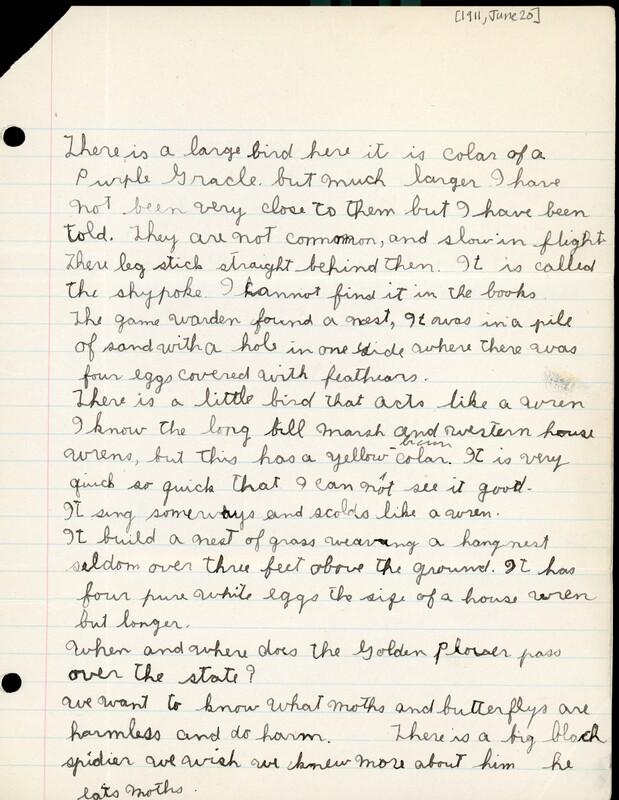 [1911, June 20]
There is a large bird here it is colar of a
Purple Gracle. but much larger I have
not been very close to them but I have been
told. They are not common, and slow in flight
There leg stick straight behind then. It is called
the shypoke. I kannot find it in the books.
The game warden found a nest, It was in a pile
of sand with a hole in one side where there was
four eggs covered with feathears.
There is a little bird that acts like a wren
I know the long bill marsh and western house
wrens, but this has a yellow brown colar. It is very
quick so quick that I can not see it good.
It sing somerways and scolds like a wren.
It build a nest of grass weaving a hang nest
seldom over three feet above the ground. It has
four pure white eggs the size of a house wren
but longer.
When and where does the Golden Plover pass
over the state?
We want to know what moths and butterflys are
harmless and do harm. There is a big black
spidier we wish we knew more about him he
eats moths.